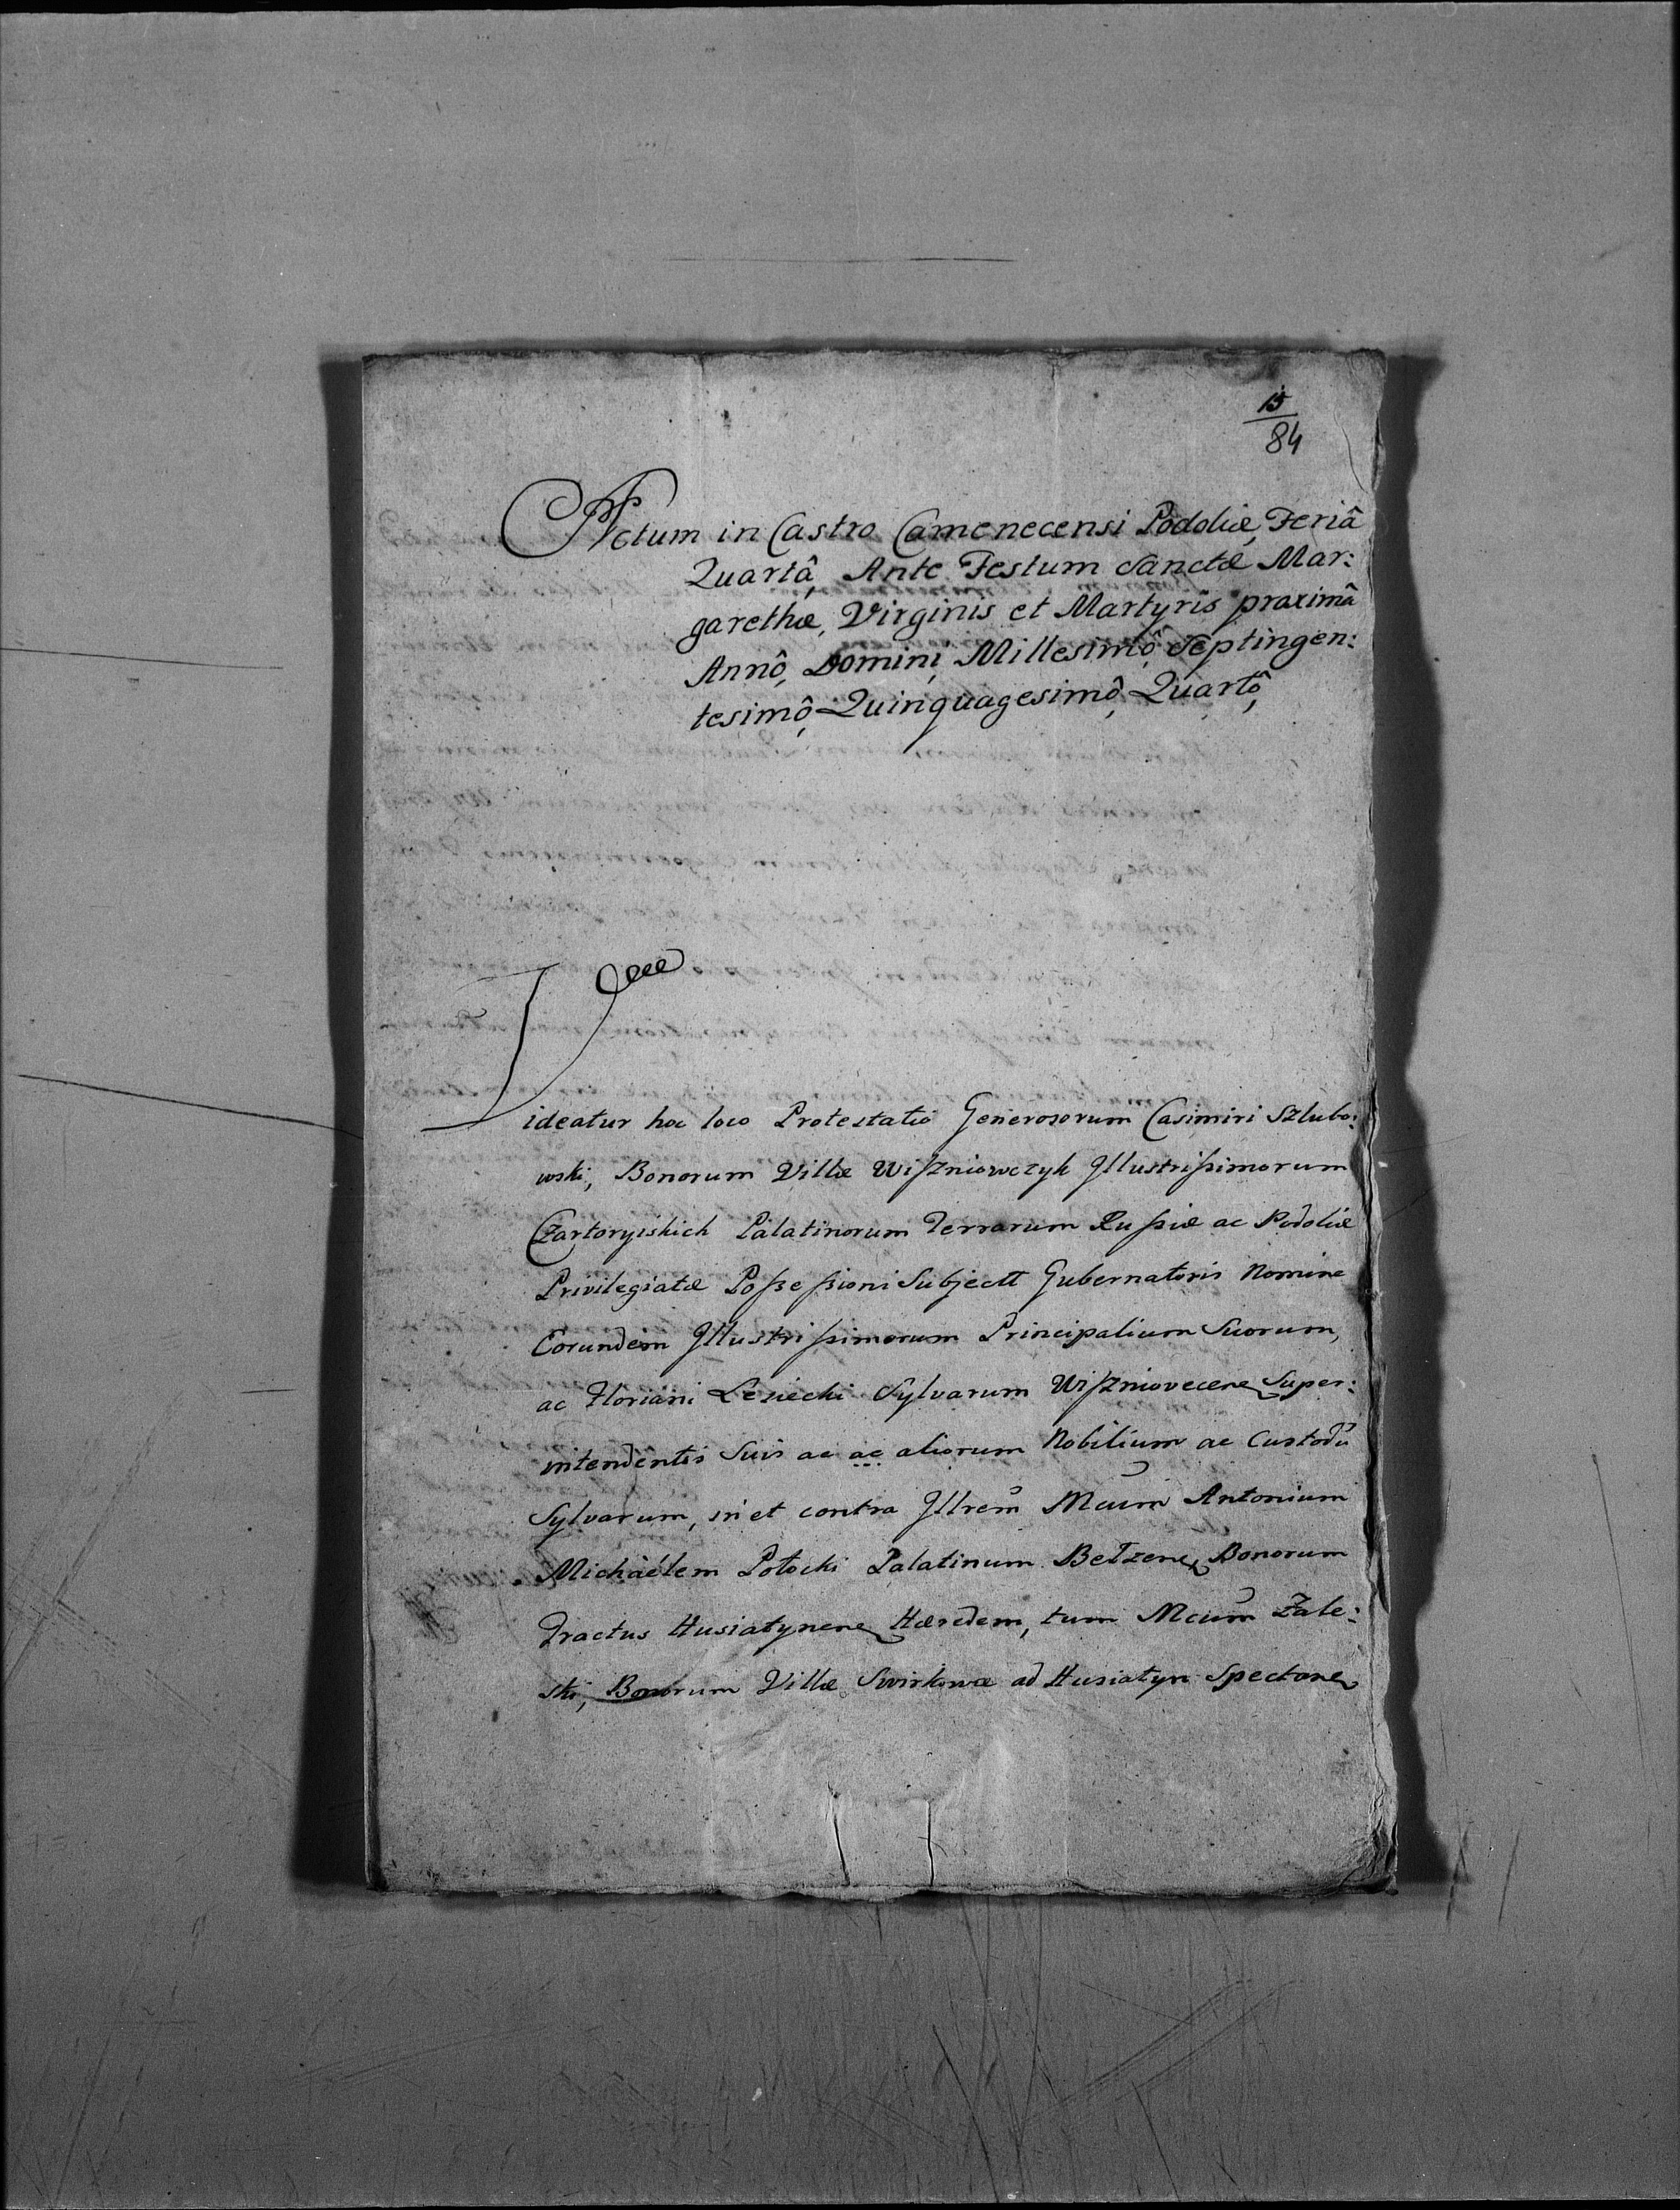 15
84
Actum in Castro Camenecensi Podoliæ, Feriâ
Quartâ, Ante Festum Sanctæ Mar:
garethæ, Virginis et Martyris proximâ
Annô, Domini, Millesimô, Septingen:
tesimô, Quinquagesimô, Quartô,
Videatur hoc loco Protestatio Generosorum Casimiri Szlubo:
wski, Bonorum Villæ Wiszniowczyk Jllustrißimorum
Czartoryiskich Palatinorum Terrarum Rußiæ ac Podoliæ
Privilegiatæ Poßeßioni Subject Gubernatoris Nomine
Eorundem Jllustrißimorum Principalium Suorum,
ac Floriani Lesiecki Sylvarum Wiszniovecen Super:
intendentis Suis ac ac aliorum Nobilium ac Custodũ
Sylvarum, in et contra Jllrem̃ Mcum̃ Antonium
Michaëlem Potocki Palatinum Bełzen, Bonorum
Tractus Husiatynen Hæredem, tum Mcum̃ Zale:
ski, Bonorum Villæ Swirkowa ad Husiatyn Spectan